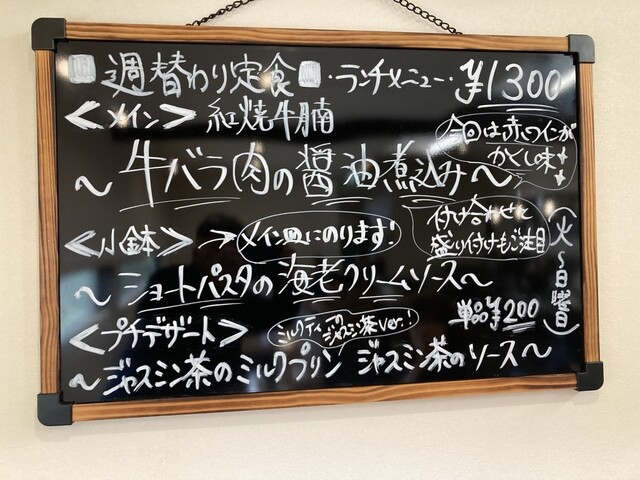 週替わり定食 ・ランチメニュー・ ¥1300
<メイン> 紅焼牛腩
今回は赤ワインが
かくし味
~牛バラ肉の醤油煮込み~
付け合わせと
盛り付けもご注目
(火~日曜日)
<小鉢> → メイン皿にのります!
~ショートパスタの海老クリームソース~
<プチデザート>
ミルクティーの
ジャスミン茶ver.!
単品¥200
~ジャスミン茶のミルクプリン ジャスミン茶のソース~